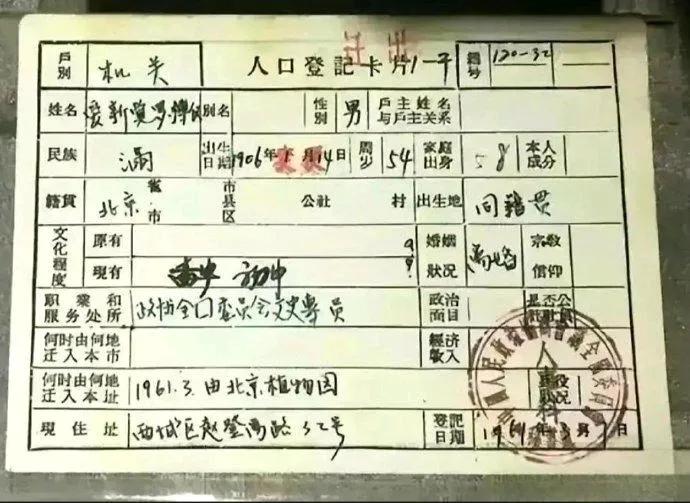 迁出
人口登記卡片1-子 編号 120-32
戶別 机关
姓名 愛新覚罗·溥仪 別名 性別 男 戶主姓名与戶主关系
民族 满 出生日期 1906年 月14日 周岁 54 家庭出身 本人成分
籍貫 北京 省·市 市县区 公社 村 出生地 同籍贯
文化程度 原有 婚姻状况 离婚 宗教信仰
現有 初中
职業和服务处所 政协全囗委员会文史專员 政治面目 是否公社社員
何时由何地迁入本市 經济收入
何时由何地迁入本址 1961.3.由北京植物园
現住址 西城区赵登禹路32号 登記日期 1961年3月 日
中國人民政治協商會議全國委員會
人事科